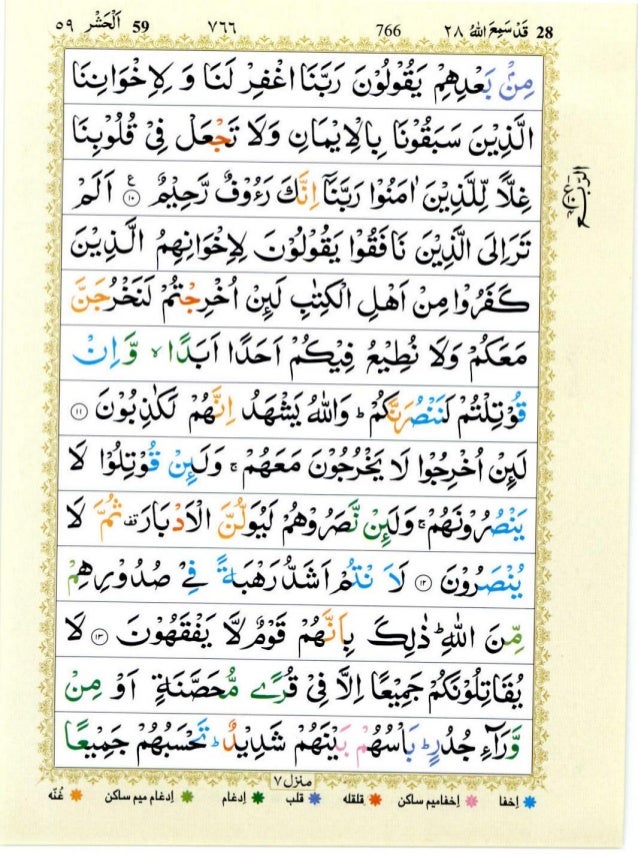 28 قَدْ سَمِعَ اللّٰهُ ٢٨ 766 ٧٦٦ 59 اَلْحَشْر ٥٩
مِنْۢ بَعْدِهِمْ يَقُوْلُوْنَ رَبَّنَا اغْفِرْ لَنَا وَ لِاِخْوَانِنَا
الَّذِيْنَ سَبَقُوْنَا بِالْاِيْمَانِ وَلَا تَجْعَلْ فِىْ قُلُوْبِنَا
غِلًّا لِّلَّذِيْنَ اٰمَنُوْا رَبَّنَاۤ اِنَّكَ رَءُوْفٌ رَّحِيْمٌ ﴿١٠﴾ ع اَلَمْ
تَرَ اِلَى الَّذِيْنَ نَافَقُوْا يَقُوْلُوْنَ لِاِخْوَانِهِمُ الَّذِيْنَ
كَفَرُوْا مِنْ اَهْلِ الْكِتٰبِ لَىِٕنْ اُخْرِجْتُمْ لَنَخْرُجَنَّ
مَعَكُمْ وَلَا نُطِيْعُ فِيْكُمْ اَحَدًا اَبَدًا ۙ وَّاِنْ
قُوْتِلْتُمْ لَنَنْصُرَنَّكُمْ ؕ وَاللّٰهُ يَشْهَدُ اِنَّهُمْ لَكٰذِبُوْنَ ﴿١١﴾
لَىِٕنْ اُخْرِجُوْا لَا يَخْرُجُوْنَ مَعَهُمْ ۚ وَلَىِٕنْ قُوْتِلُوْا لَا
يَنْصُرُوْنَهُمْ ۚ وَلَىِٕنْ نَّصَرُوْهُمْ لَيُوَلُّنَّ الْاَدْبَارَ ۟ ثُمَّ لَا
يُنْصَرُوْنَ ﴿١٢﴾ لَا۠ نْتُمْ اَشَدُّ رَهْبَةً فِىْ صُدُوْرِهِمْ
مِّنَ اللّٰهِ ؕ ذٰلِكَ بِاَنَّهُمْ قَوْمٌ لَّا يَفْقَهُوْنَ ﴿١٣﴾ لَا
يُقَاتِلُوْنَكُمْ جَمِيْعًا اِلَّا فِىْ قُرًى مُّحَصَّنَةٍ اَوْ مِنْ
وَّرَآءِ جُدُرٍ ؕ بَاْسُهُمْ بَيْنَهُمْ شَدِيْدٌ ؕ تَحْسَبُهُمْ جَمِيْعًا
الربع
ع ١٠
منزل ٧
اِخفا اِخفامیم ساکن قلقله قلب اِدغام اِدغام میم ساکن غُنّه